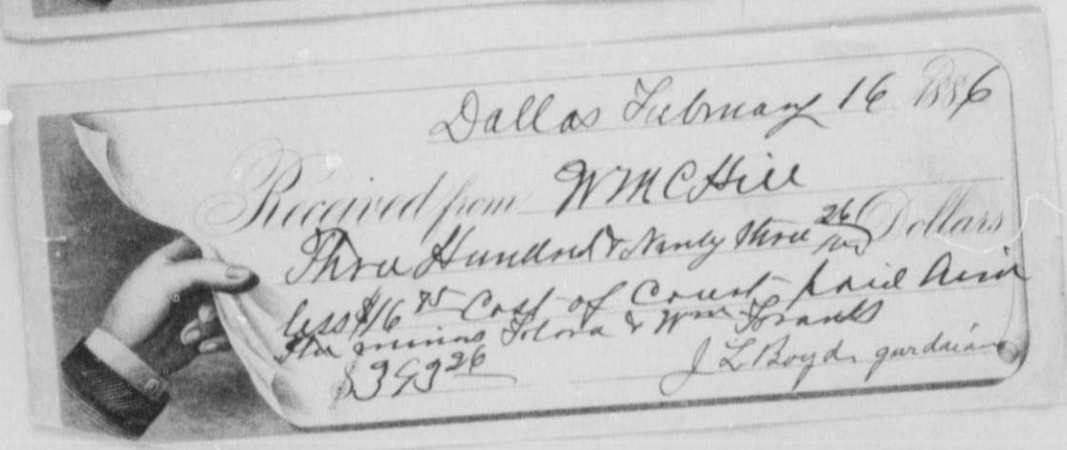 Dallas February 16 1886
Received from W M C Hill
Three Hundred & Ninety three 26/100 Dollars
less $16 75 Cost of Court paid
The minors & Wm Franks
$393 26
J L Boyd gurdain